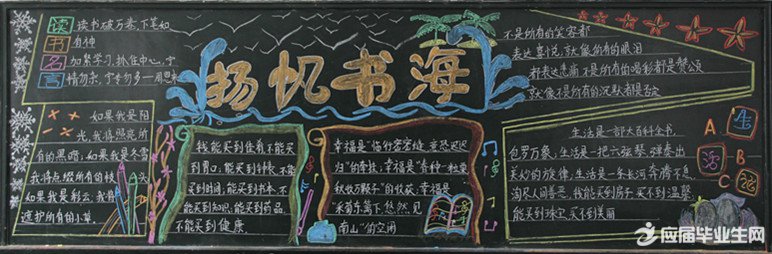 扬帆书海
读书名言
读书破万卷,下笔如
有神
加紧学习,抓住中心,宁
精勿杂,宁专勿多—周恩来
如果我是阳
光,我将照亮所
有的黑暗,如果我是冬雪
我将点缀所有的枝头
如果我是彩云,我将
遮护所有的小草.
我能买到住着,不能买
到胃口,能买到钟表,不能
买到时间,能买到书本,不
能买到知识,能买到药品,
不能买到健康
幸福是“临行密密缝,意恐迟迟
归”的牵挂;幸福是“春种一粒粟
秋收万颗子”的收获.幸福是
采菊东篱下,悠然见
南山”的空闲
不是所有的笑容都
表达喜悦,就像所有的眼泪
都表达悲痛 不是所有的喝彩都是赞颂
就像不是所有的沉默都是否定
生活是一部大百科全书,
包罗万象,生活是一把六弦琴 弹奏出
美妙的旋律,生活是一条长河 奔腾不息
淘尽人间善恶,我能买到房子 买不到温馨
能买到珠宝 买不到美丽
A
B
C
应届毕业生网
YJBYS.COM